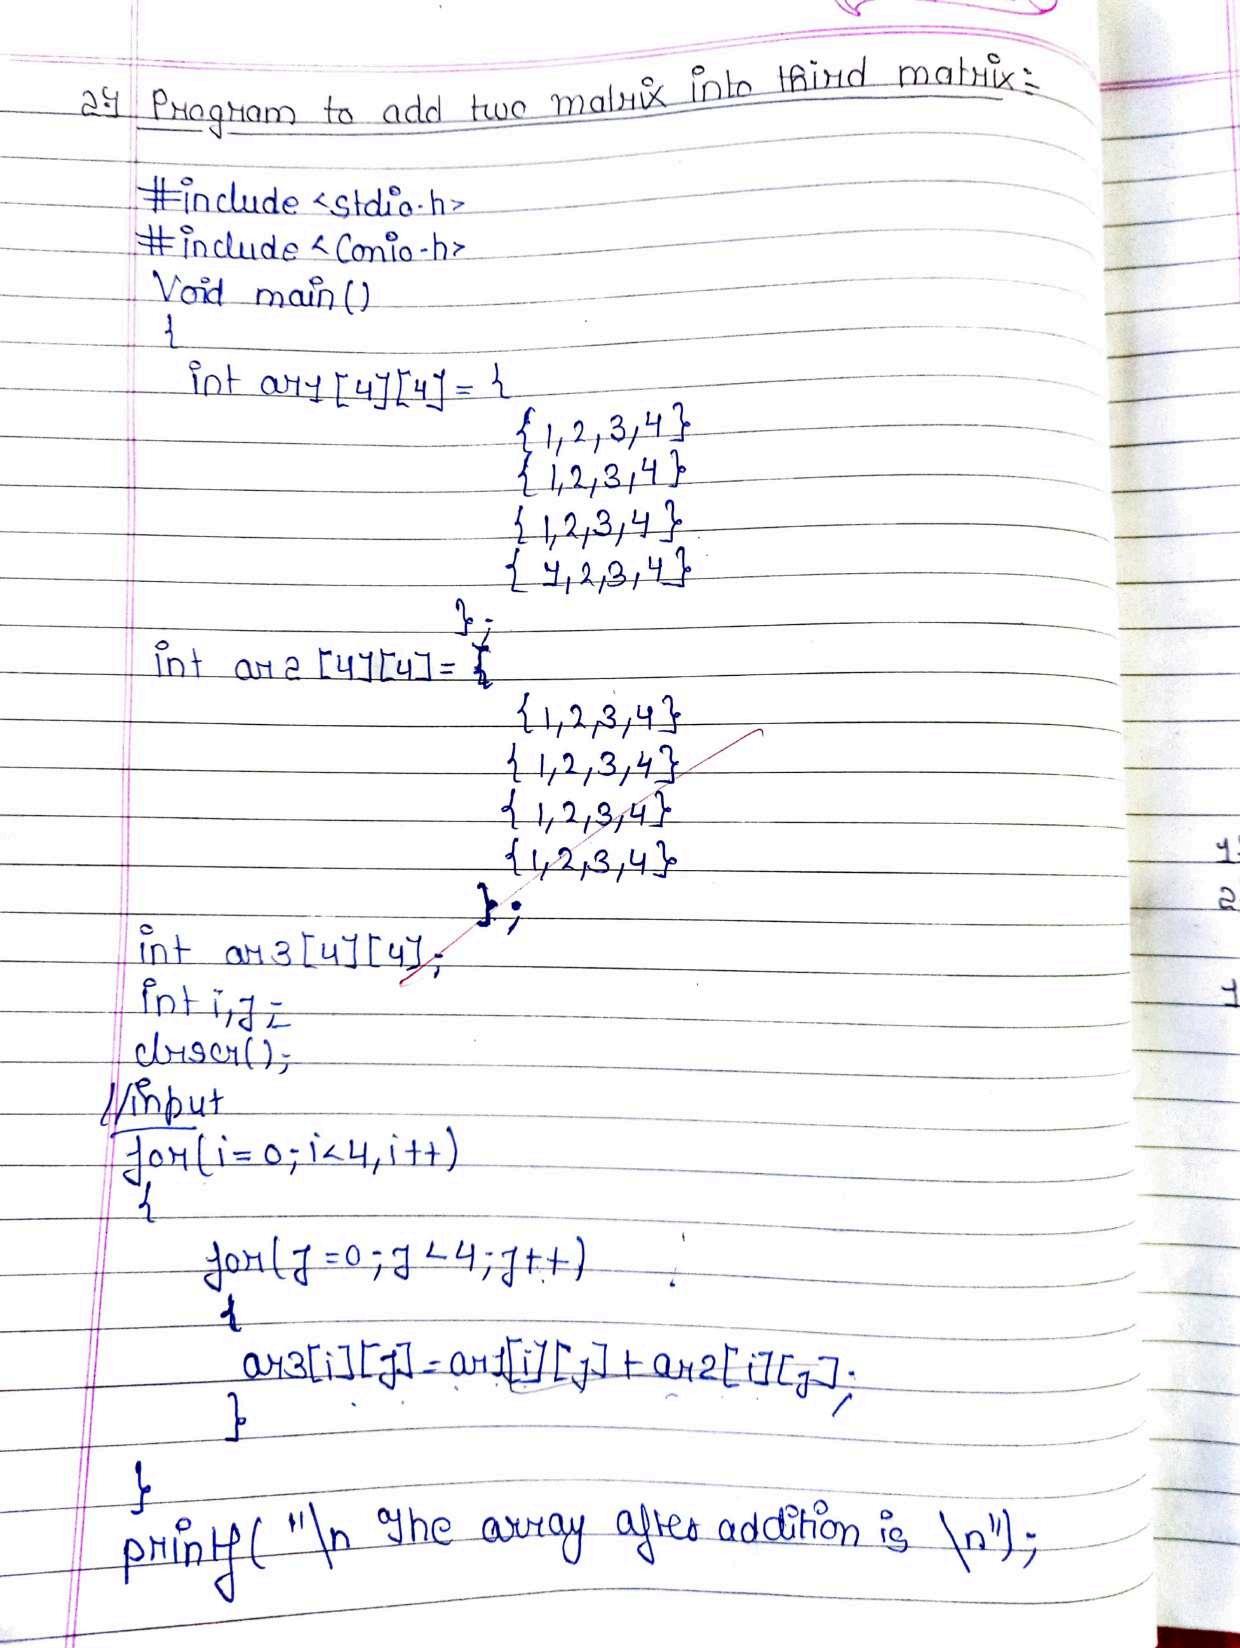 24 Program to add two matrix into third matrix:-
#include <stdio.h>
#include <Conio.h>
Void main()
{
int ar1[4][4] = {
{1,2,3,4}
{1,2,3,4}
{1,2,3,4}
{1,2,3,4}
};
int ar2[4][4] = {
{1,2,3,4}
{1,2,3,4}
{1,2,3,4}
{1,2,3,4}
};
int ar3[4][4];
int i,j;
clrscr();
//input
for(i=0;i<4,i++)
{
for(j=0;j<4;j++)
{
ar3[i][j]=ar1[i][j]+ar2[i][j];
}
}
printf("\n The array after addition is \n");
1
2
1